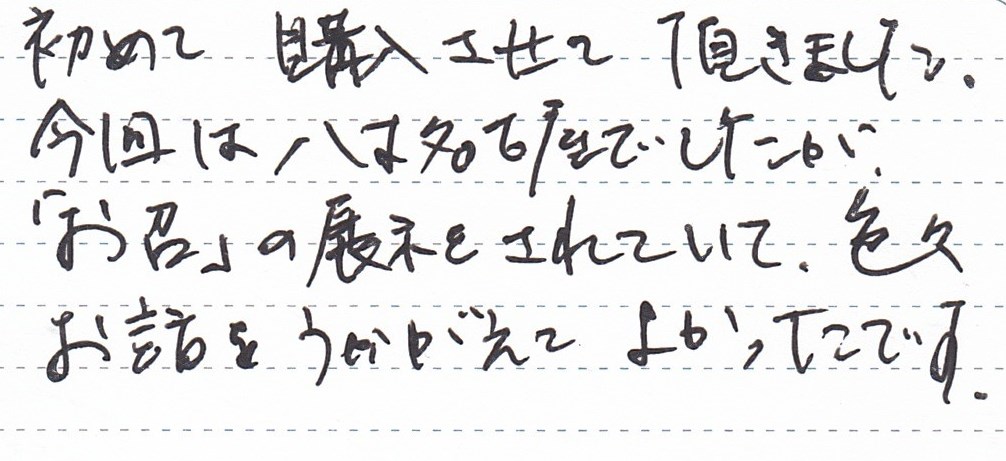 初めて 購入させて頂きました。
今回は八は名古屋でしたが、
「お召」の展示をされていて、色々
お話をうかがえてよかったです。